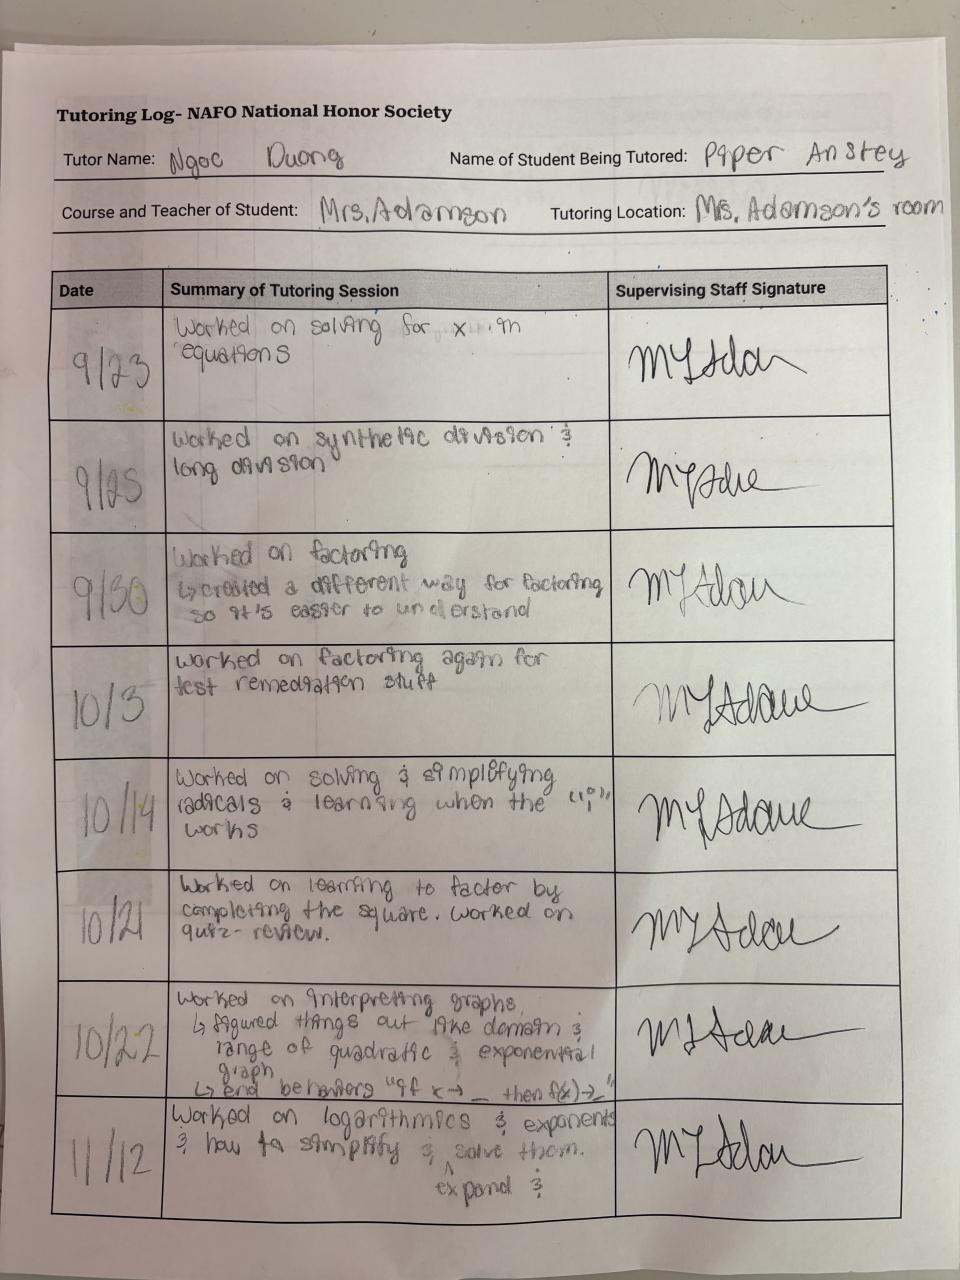 Tutoring Log- NAFO National Honor Society
Tutor Name: Ngoc Duong Name of Student Being Tutored: Piper Anstey
Course and Teacher of Student: Mrs. Adamson Tutoring Location: Mrs. Adamson's room
Date Summary of Tutoring Session Supervising Staff Signature
9/23 Worked on solving for x in
equations
9/25 Worked on synthetic division &
long division
9/30 Worked on factoring
↳ created a different way for factoring
so it's easier to understand
10/3 Worked on factoring again for
test remediation stuff
10/14 Worked on solving & simplifying
radicals & learning when the "i"
works
10/21 Worked on learning to factor by
completing the square. Worked on
quiz-review.
10/22 Worked on interpreting graphs,
↳ figured things out like domain &
range of quadratic & exponential
graph
↳ end behaviors "if x→_ then f(x)→_"
11/12 Worked on logarithmics & exponents
& how to simplify & solve them.
expand &